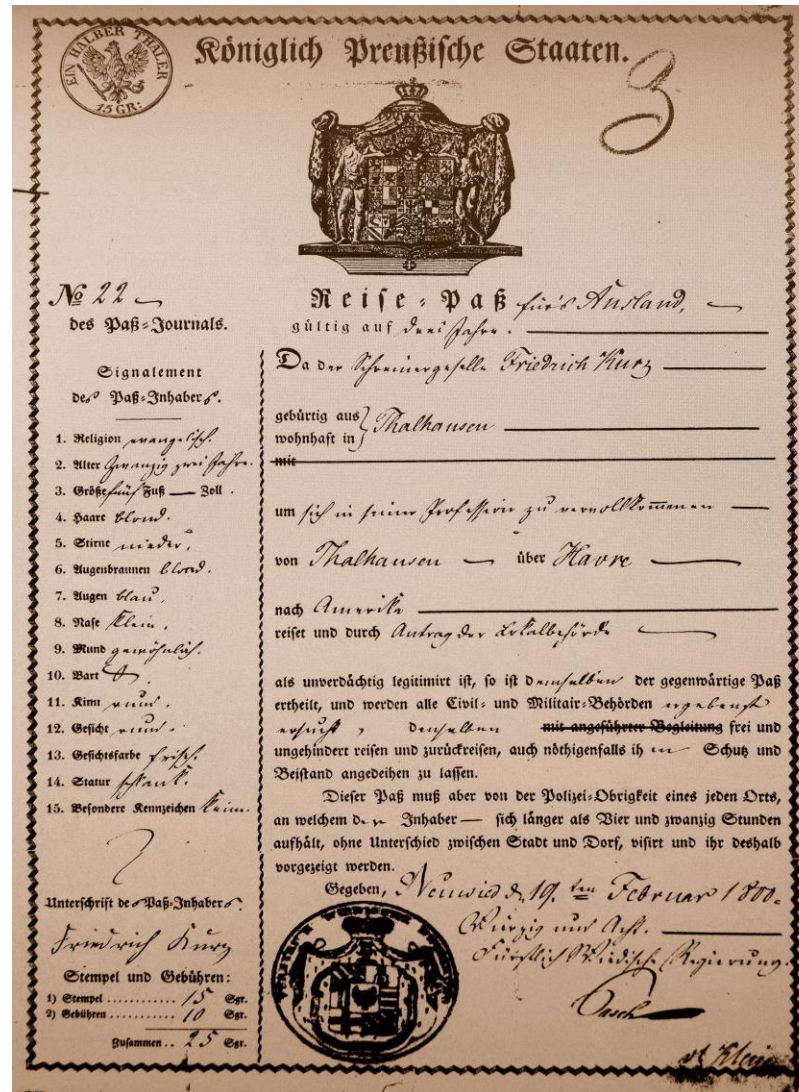 EIN HALBER THALER
15 GR:
Königlich Preußische Staaten.
3
No 22
des Paß-Journals.
Signalement
des Paß-Inhabers.
1. Religion evangelisch.
2. Alter Zwanzig zwei Jahre.
3. Größe fünf Fuß — Zoll.
4. Haare blond.
5. Stirne nieder.
6. Augenbraunen blond.
7. Augen blau.
8. Nase klein.
9. Mund gewöhnlich.
10. Bart
11. Kinn rund.
12. Gesicht rund.
13. Gesichtsfarbe frisch.
14. Statur schlank.
15. Besondere Kennzeichen keine.
Unterschrift des Paß-Inhabers.
Friedrich Kurz
Stempel und Gebühren:
1) Stempel ............ 15 Sgr.
2) Gebühren ........... 10 Sgr.
Zusammen .. 25 Sgr.
Reise-Paß für's Ausland,
gültig auf drei Jahre.
Da der Schreinergeselle Friedrich Kurz
gebürtig aus
wohnhaft in } Thalhausen
mit
um sich in seiner Profession zu vervollkommenen
von Thalhausen — über Havre
nach Amerika
reiset und durch Antrag der Lokalbehörde
als unverdächtig legitimirt ist, so ist demselben der gegenwärtige Paß
ertheilt, und werden alle Civil- und Militair-Behörden ergebenst
ersucht, denselben mit angeführter Begleitung frei und
ungehindert reisen und zurückreisen, auch nöthigenfalls ihm Schutz und
Beistand angedeihen zu lassen.
Dieser Paß muß aber von der Polizei-Obrigkeit eines jeden Orts,
an welchem der Inhaber — sich länger als Vier und zwanzig Stunden
aufhält, ohne Unterschied zwischen Stadt und Dorf, visirt und ihr deshalb
vorgezeigt werden.
Gegeben, Neuwied d. 19. ten Februar 1800.
Vierzig und Acht.
Fürstlich Wiedische Regierung.